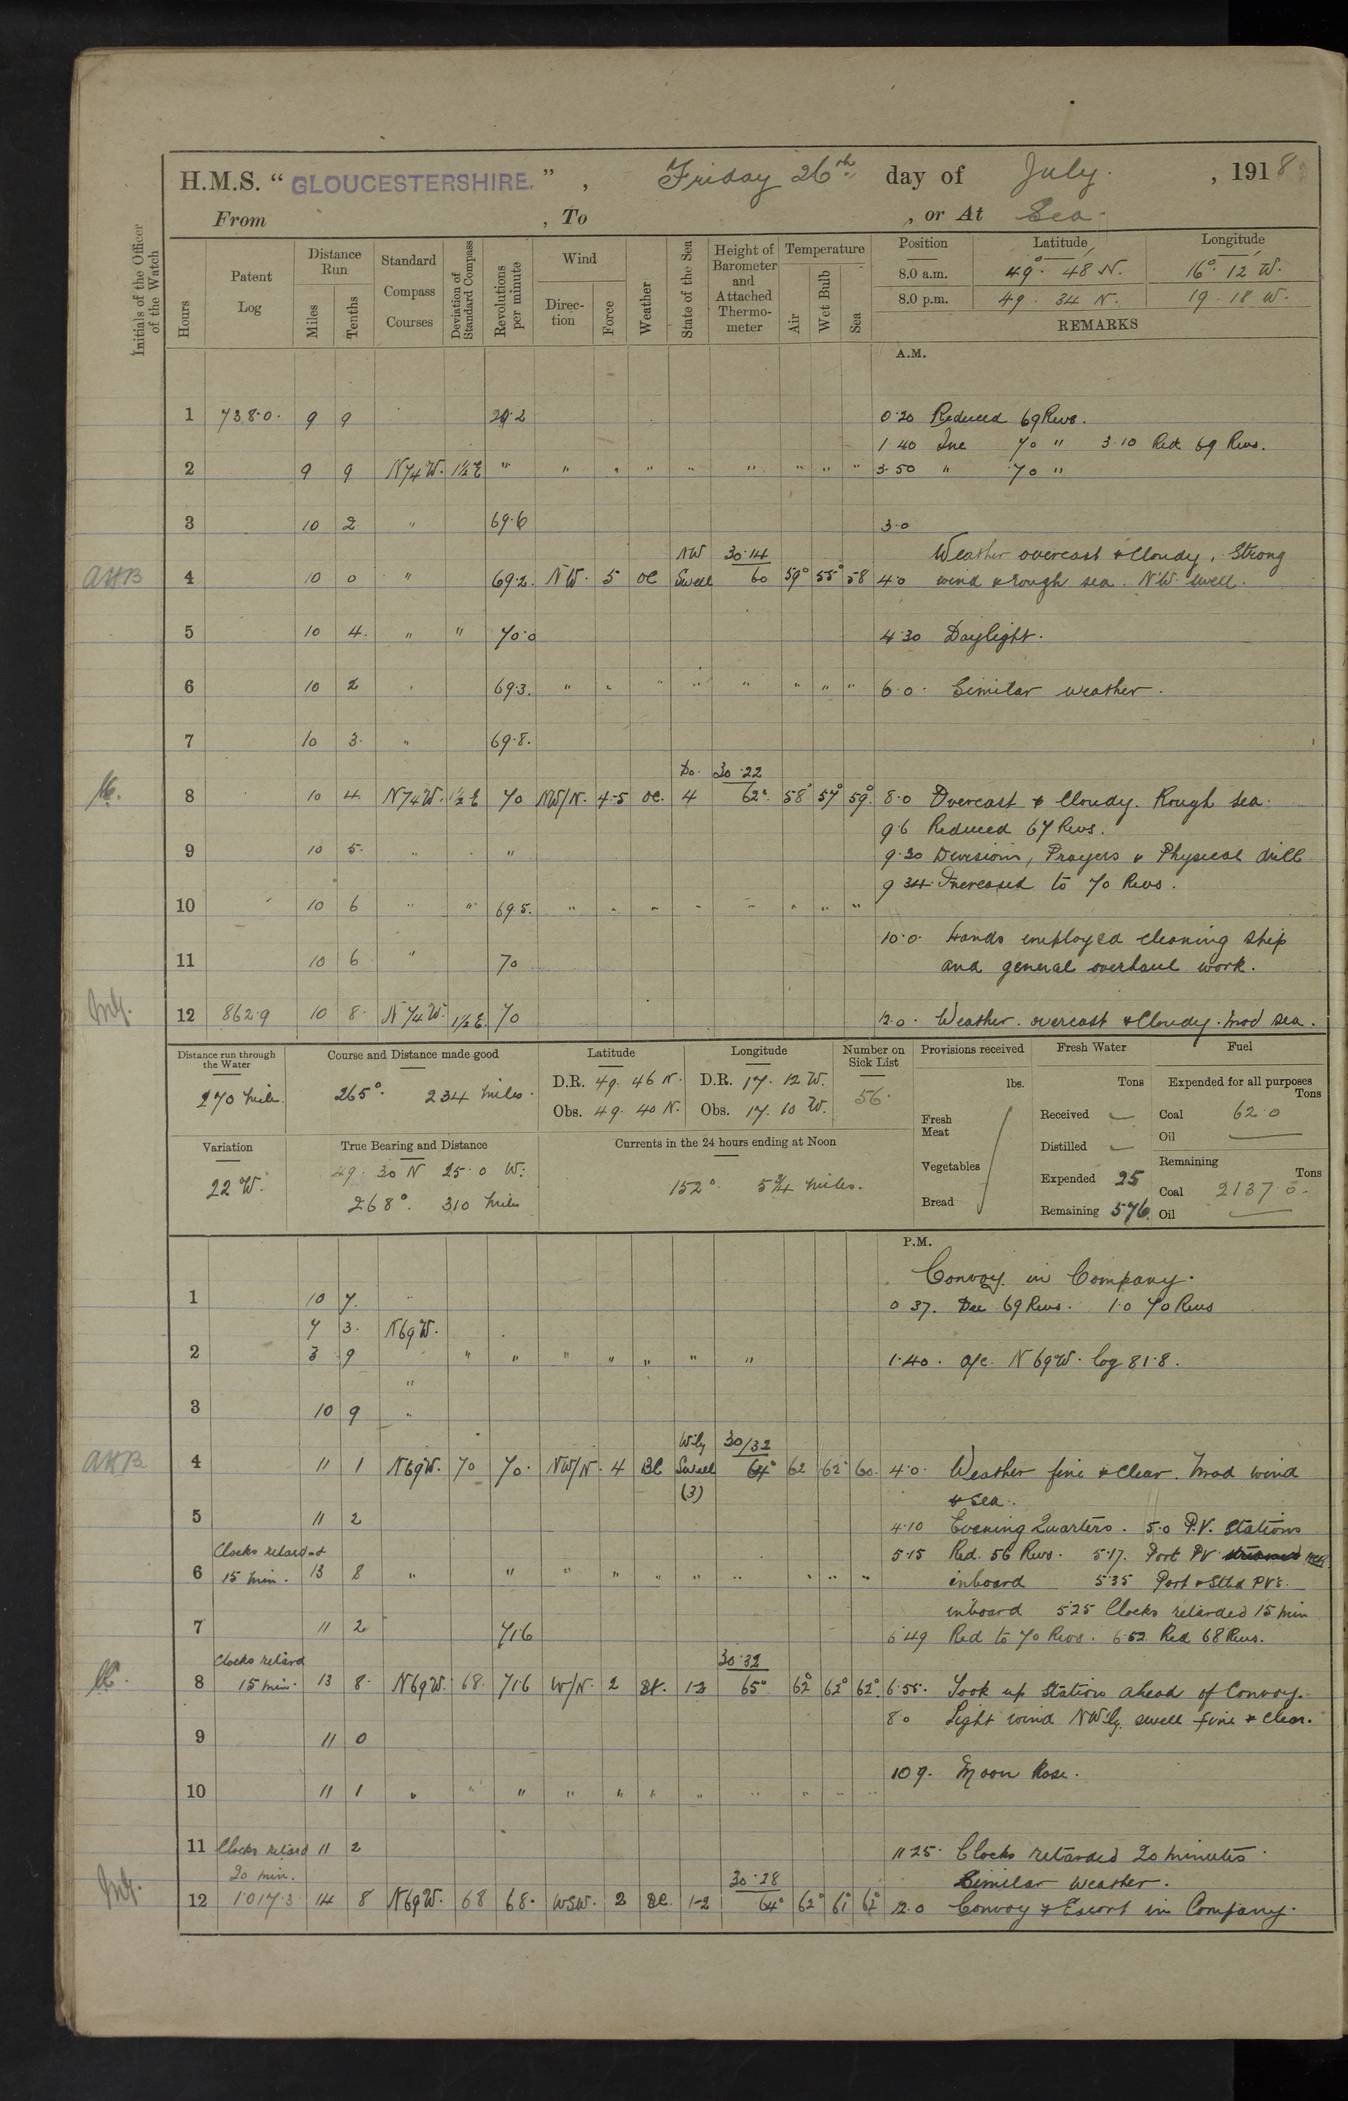 H.M.S. “ GLOUCESTERSHIRE. ” , Friday 26th day of July. , 1918
From , To , or At Sea.
Initials of the Officer of the Watch
Hours
Patent Log
Distance Run
Miles
Tenths
Standard Compass Courses
Deviation of Standard Compass
Revolutions per minute
Wind
Direction
Force
Weather
State of the Sea
Height of Barometer and Attached Thermometer
Temperature
Air
Wet Bulb
Sea
Position Latitude Longitude
8.0 a.m. 49° 48 N. 16° 12 W.
8.0 p.m. 49 34 N. 19 18 W.
REMARKS
A.M.
1 738.0. 9 9 0.20 Reduced 69 Revs.
1.40 Inc 70 " 3.10 Red 69 Revs.
2 9 9 N74W. 1½E " " " " " " " " " 3.50 " 70 "
3 10 2 " 69.6 3.0
NW 30.14 Weather overcast & Cloudy, Strong
AHB 4 10 0 " 69.2. NW. 5 OC Swell 60 59° 55° 58 4.0 wind & rough sea. N.W. swell.
5 10 4. " " 70.0 4.30 Daylight.
6 10 2 " 69.3. " " " " " " " " 6.0. Similar weather.
7 10 3. " 69.8.
Do. 30.22
8 10 4. N74W. 1½E 70 NW/N. 4-5 OC. 4 62° 58° 57° 59° 8.0 Overcast & Cloudy. Rough sea.
9.6 Reduced 67 Revs.
9 10 5. " " 9.30 Divisions, Prayers & Physical drill
9 34. Increased to 70 Revs.
10 10 6 " " 69.5. " " " " " " " "
10.0. Hands employed cleaning ship
11 10 6 " 70 and general overhaul work.
12 862.9 10 8. N74W. 1½E. 70 12.0. Weather. overcast & Cloudy. Mod sea.
Distance run through the Water
270 Mile.
Course and Distance made good
265°. 234 miles.
Latitude
D.R. 49. 46 N.
Obs. 49. 40 N.
Longitude
D.R. 17. 12 W.
Obs. 17. 10 W.
Number on Sick List
56.
Provisions received
lbs.
Fresh Meat
Vegetables
Bread
Fresh Water
Tons
Received —
Distilled —
Expended 25
Remaining 576.
Fuel
Expended for all purposes
Tons
Coal 62.0
Oil —
Remaining
Tons
Coal 2137.0.
Oil —
Variation
22 W.
True Bearing and Distance
49. 30 N 25.0 W.
268°. 310 Miles
Currents in the 24 hours ending at Noon
152°. 5¾ miles.
P.M.
Convoy in Company.
1 10 7. " 0 37. Dec 69 Revs. 1.0 70 Revs
7 3. N69W.
2 3 9 " " " " " " " 1.40. a/c. N69W. log 81.8.
"
3 10 9 "
W'ly 30/32
AHB 4 11 1 N69W. 70 70. NW/N. 4 BC Swell 64° 62 62° 60. 4.0. Weather fine & Clear. Mod wind
(3) & Sea.
5 11 2 4.10 Evening Quarters. 5.0 P.V. Stations
Clocks retard 5.15 Red. 56 Revs. 5.17. Port PV
6 15 min. 13 8 " " " " " " " " " " " inboard 5.35 Port & Stbd PVs.
inboard 5.25 Clocks retarded 15 min
7 11 2 71.6 6 49 Red to 70 Revs. 6.52 Red 68 Revs.
Clocks retard 30.32
8 15 min. 13 8. N69W. 68. 71.6 W/N. 2 1-2 65° 62° 62° 62°. 6.55. Took up Station ahead of Convoy.
8.0 Light wind NW'ly. swell fine & Clear.
9 11 0
10 9. Moon Rose.
10 11 1 " " " " " " " " " " "
11 Clocks retard 11 2 11 25. Clocks retarded 20 minutes.
20 min. 30.28 Similar weather.
12 1017.3 14 8 N69W. 68 68. WSW. 2 BC. 1-2 64° 62° 61° 62° 12.0 Convoy & Escort in Company.